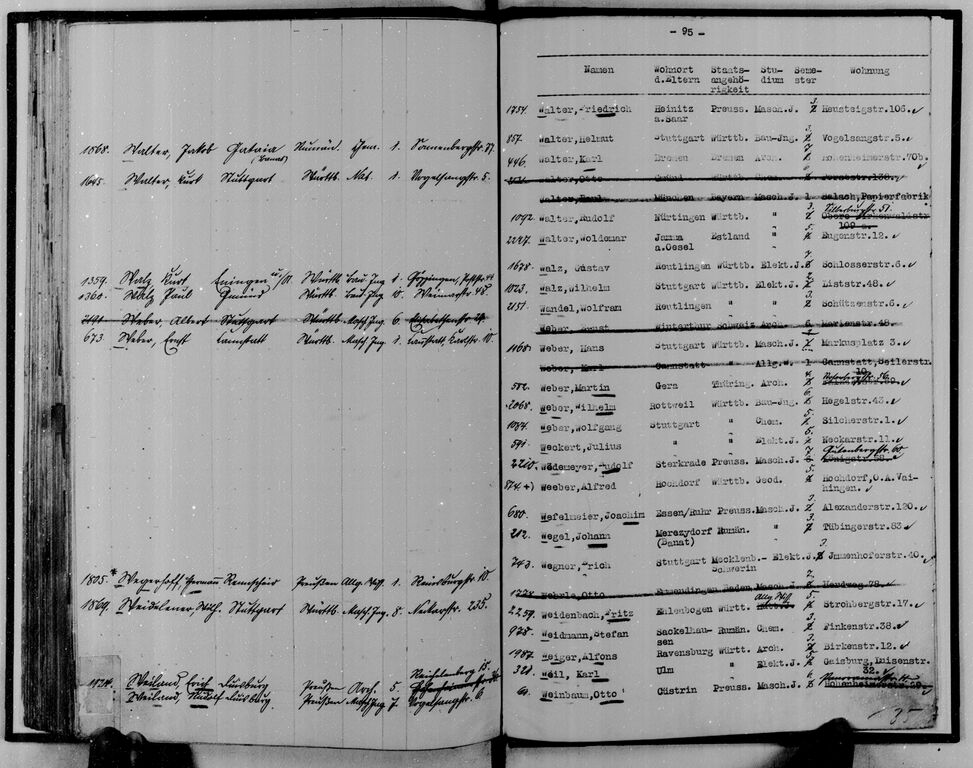 1068. Walter, Jakob Gataia Rumän. Chem. 1. Sonnenbergstr. 37.
(Banat)
1645. Walter, Kurt Stuttgart Württb. Nat. 1. Vogelsangstr. 5.
1359. Walz Kurt Württb. Bau Ing 1. Göppingen,
1360. Walz Paul Gmünd Württb. Bau Ing 10. Weimarstr. 45.
Weber, Albert Stuttgart Württb. Masch Ing. 6.
673 Weber, Ernst Cannstatt Württb. Masch Ing. 1. Cannstatt, Karlstr. 10.
1805.* Wegerhoff, Hermann Remscheid Preußen Allg. Wiss. 1. Reinsburgstr. 10.
1869. Weidelener, Wilh. Stuttgart Württb. Masch Ing. 8. Neckarstr. 235.
1124. Weiland, Erich Duisburg Preußen Arch. 5.
Weiland, Rudolf Duisburg. Preußen Masch Ing. 7. Vogelsangstr. 6
- 95 -
Namen Wohnort Staats- Stu- Seme- Wohnung
d.Eltern angehö- dium ster
rigkeit
1754. Walter, Friedrich Heinitz Preuss. Masch.J. 3. Heusteigstr.106.
a.Saar
857. Walter, Helmut Stuttgart Württb. Bau-Jng. 3. Vogelsangstr.5.
446. Walter, Karl Bremen Bremen Arch. 7. Hohenheimerstr.70b.
Walter, Otto Gmünd Württb. Chem. Forststr.138.
Walter, Paul München Bayern Masch.J. 1 Salach,Papierfabrik
Tübingerstr. 51.
1092. Walter, Rudolf Nürtingen Württb. " 3. Obere Birkenwaldstr
109
2297. Walter, Woldemar Jamma Estland " 5. Eugenstr.12.
a.Oesel
1678. Walz, Gustav Reutlingen Württb. Elekt.J. 7. Schlosserstr.6.
1023. Walz, Wilhelm Stuttgart Württb. Elekt.J. Liststr.48.
2151. Wandel, Wolfram Reutlingen " " 3. Schützenstr.6.
Weber, Ernst Winterthur Schweiz Arch. 6. Marienstr.48.
1165. Weber, Hans Stuttgart Württb. Masch.J. Markusplatz 3.
Weber, Karl Cannstatt " Allg.W. 1 Cannstatt, Seilerstr.
10.
582. Weber, Martin Gera Thüring. Arch. 4.
2065. Weber, Wilhelm Rottweil Württb. Bau-Jng. 6. Hegelstr.43.
1084. Weber, Wolfgang Stuttgart " Chem. 5. Silcherstr.1.
591. Weckert, Julius " " Elekt.J. 6. Neckarstr.11.
Gutenbergstr. 60.
2210. Wedemeyer, Rudolf Sterkrade Preuss. Masch.J. 7 Königstr.
874 +) Weeber, Alfred Hochdorf Württb. Geod. 5. Hochdorf, O.A.Vai-
hingen.
680. Wefelmeier, Joachim Essen/Ruhr Preuss. Masch.J. 3. Alexanderstr.120.
212. Wegel, Johann Merczydorf Rumän. " 3. Tübingerstr.83
(Banat)
743. Wegner, Erich Stuttgart Mecklenb.- Elekt.J. 3. Immenhoferstr.40.
Schwerin
Wehrle, Otto Emmendingen Baden Masch.J. 7. Herdweg 78.
Allg. Wiss
2259. Weidenbach, Fritz Ehlenbogen Württ. Strohbergstr.17.
978. Weidmann, Stefan Sackelhau- Rumän. Chem. 3. Finkenstr.38.
sen
1987. Weiger, Alfons Ravensburg Württ. Arch. 3. Birkenstr.12.
321. Weil, Karl Ulm " Elekt.J. 5. Gaisburg, Luisenstr.
32.
61. Weinbaum, Otto Cüstrin Preuss. Masch.J. 6
35